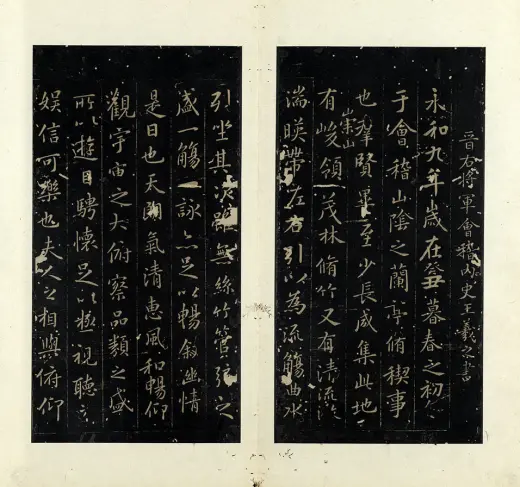 晉右將軍會稽內史王羲之書
永和九年歲在癸丑暮春之初會
于會稽山陰之蘭亭脩禊事
也羣賢畢至少長咸集此地
有崇山峻領茂林脩竹又有清流激
湍暎帶左右引以為流觴曲水
列坐其次雖無絲竹管弦之
盛一觴一詠亦足以暢敘幽情
是日也天朗氣清惠風和暢仰
觀宇宙之大俯察品類之盛
所以遊目騁懷足以極視聽之
娛信可樂也夫人之相與俯仰